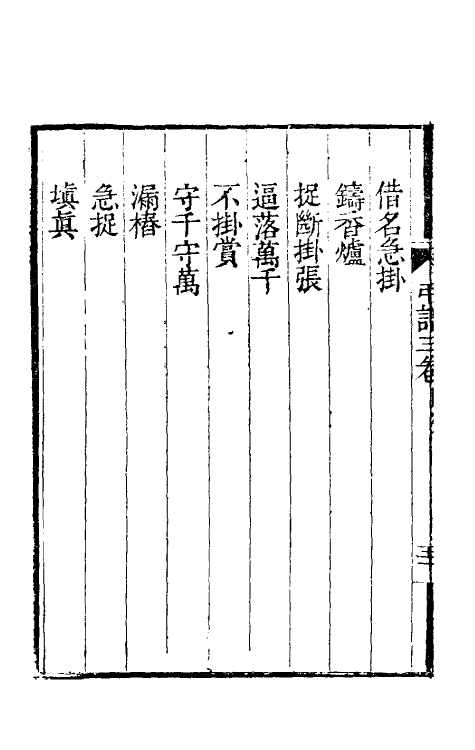 借名急掛
鑄香爐
捉斷掛張
逼落萬千
不掛賞
守千守萬
漏樁
急捉
塡眞